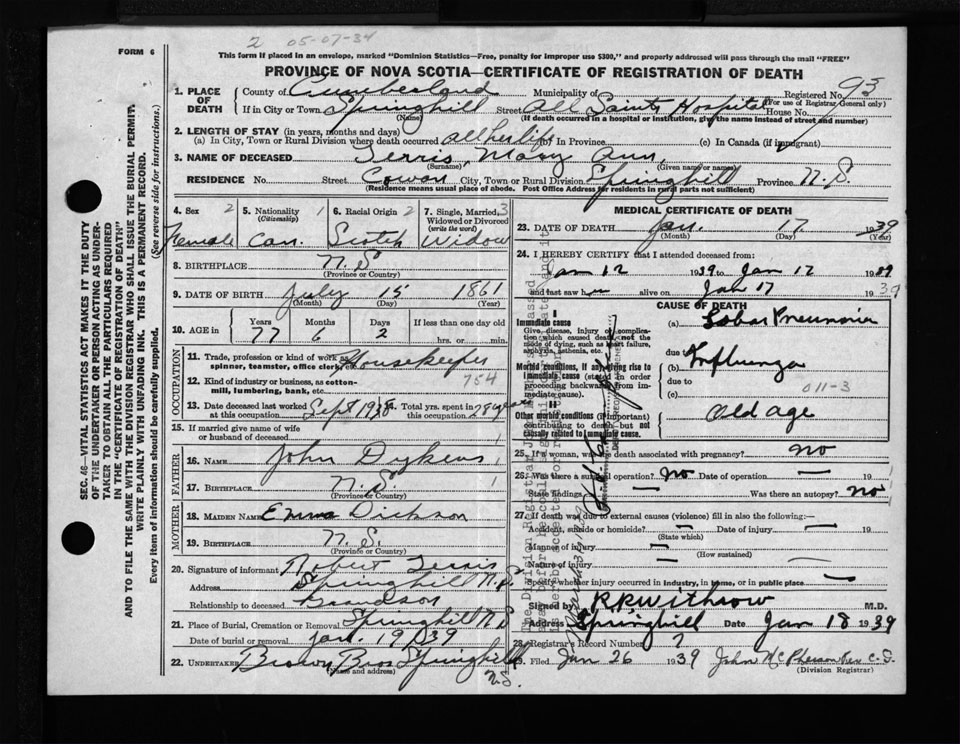 2 05-07-34
FORM 6
This form if placed in an envelope, marked "Dominion Statistics—Free, penalty for improper use $300," and properly addressed will pass through the mail "FREE"
PROVINCE OF NOVA SCOTIA—CERTIFICATE OF REGISTRATION OF DEATH
SEC. 46—VITAL STATISTICS ACT MAKES IT THE DUTY
OF THE UNDERTAKER OR PERSON ACTING AS UNDER-
TAKER TO OBTAIN ALL THE PARTICULARS REQUIRED
IN THE "CERTIFICATE OF REGISTRATION OF DEATH"
AND TO FILE THE SAME WITH THE DIVISION REGISTRAR WHO SHALL ISSUE THE BURIAL PERMIT.
WRITE PLAINLY WITH UNFADING INK. THIS IS A PERMANENT RECORD.
Every item of information should be carefully supplied. (See reverse side for instructions.)
1. PLACE OF DEATH County of Cumberland Municipality of Registered No. 93
(For use of Registrar General only)
If in City or Town Springhill Street All Saints Hospital House No.
(Name) (If death occurred in a hospital or institution, give the name instead of street and number)
2. LENGTH OF STAY (in years, months and days)
(a) In City, Town or Rural Division where death occurred all her life (b) In Province (c) In Canada (if immigrant)
3. NAME OF DECEASED Ferris, Mary Ann,
(Surname) (Given name or names)
RESIDENCE No. Street Cowan City, Town or Rural Division Springhill Province N.S.
(Residence means usual place of abode. Post Office Address for residents in rural parts not sufficient)
4. Sex 2 Female
5. Nationality 1 (Citizenship) Can.
6. Racial Origin 2 Scotch
7. Single, Married, 3 Widowed or Divorced (write the word) Widow
8. BIRTHPLACE N.S.
(Province or Country)
9. DATE OF BIRTH July 15 1861
(Month) (Day) (Year)
10. AGE in Years 77 Months 6 Days 2 If less than one day old hrs. or min.
OCCUPATION
11. Trade, profession or kind of work as spinner, teamster, office clerk, etc. Housekeeper
12. Kind of industry or business, as cotton-mill, lumbering, bank, etc. 754
13. Date deceased last worked at this occupation Sept 1938 Total yrs. spent in this occupation years
15. If married give name of wife or husband of deceased
FATHER
16. Name John Dykens
17. Birthplace N.S.
(Province or Country)
MOTHER
18. MAIDEN NAME Emma Dickson
19. BIRTHPLACE N.S.
(Province or Country)
20. Signature of informant Robert Ferris
Address Springhill N.S.
Relationship to deceased Grandson
21. Place of Burial, Cremation or Removal Springhill N.S
Date of burial or removal Jan. 19 1939
22. UNDERTAKER Brown Bros Springhill N.S.
(Name and address)
MEDICAL CERTIFICATE OF DEATH
23. DATE OF DEATH Jan. 17 1939
(Month) (Day) (Year)
24. I HEREBY CERTIFY that I attended deceased from:
Jan 12 1939 to Jan 17 1939
and last saw h alive on Jan 17 1939
CAUSE OF DEATH
Immediate cause
Give disease, injury or complication which caused death not the mode of dying, such as heart failure, asphyxia, asthenia, etc.
(a) Lobar Pneumonia
Morbid conditions, if any, giving rise to immediate cause (stated in order proceeding backwards from immediate cause).
due to (b) Influenza
due to (c) 011-3
Other morbid conditions (if important) contributing to death but not causally related to immediate cause.
Old age
25. If a woman, was death associated with pregnancy? no
26. Was there a surgical operation? no Date of operation 19
State findings — Was there an autopsy? no
27. If death was due to external causes (violence) fill in also the following:—
Accident, suicide or homicide? — Date of injury — 19
(State which)
Manner of injury — (How sustained)
Nature of injury —
Specify whether injury occurred in industry, in home, or in public place —
Signed by R.R. Withrow M.D.
Address Springhill Date Jan 18 1939
28. Registrar's Record Number 7
29. Filed Jan 26 1939
(Division Registrar)